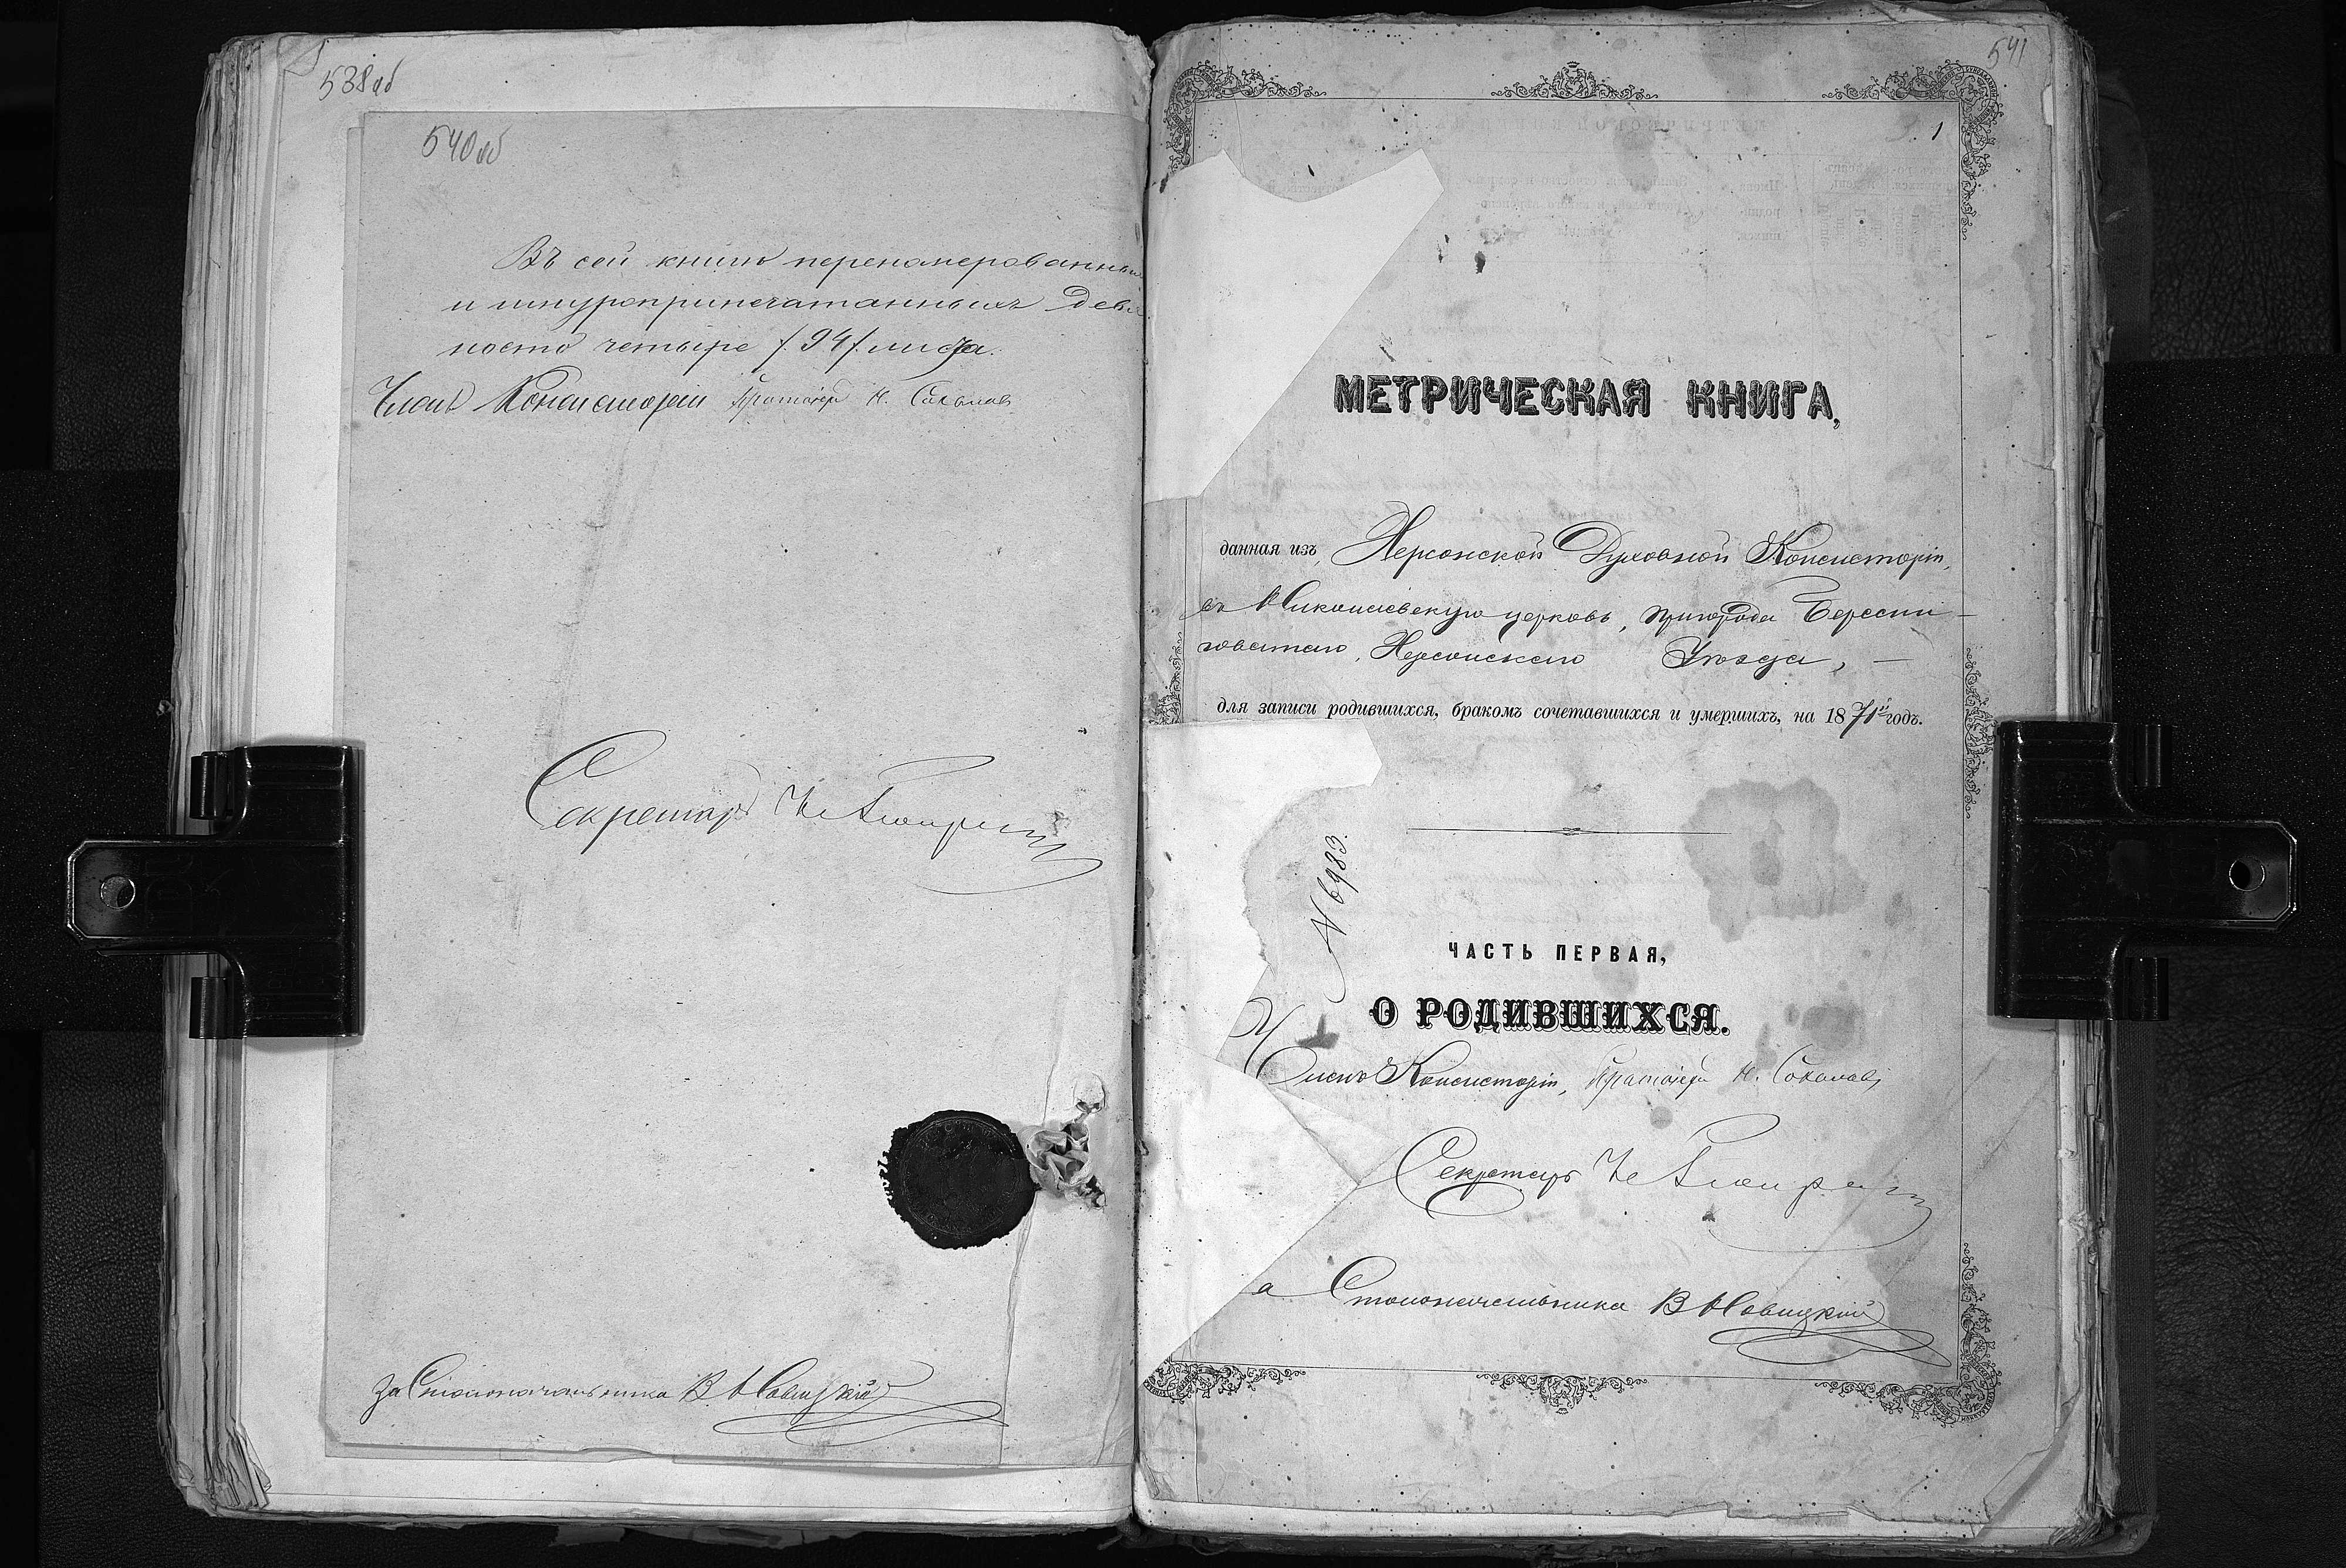 538об
540об
Въ сей книгѣ перенумерованныхъ
и шнуроприпечатанныхъ девя
носто четыре /.94/. листа.
Членъ Консисторіи Протоіерей Н. Соколовъ
Секретарь
За Столоначальника В. Новицкій
541
1
МЕТРИЧЕСКАЯ КНИГА,
данная изъ Херсонской Духовной Консисторіи,
въ Николаевскую церковь, пригорода Бересни-
говатаго, Херсонскаго Уѣзда, —
для записи родившихся, бракомъ сочетавшихся и умершихъ, на 1871й годъ.
N 6983.
ЧАСТЬ ПЕРВАЯ,
О РОДИВШИХСЯ.
Членъ Консисторіи, Протоіерей Н. Соколовъ
Секретарь
а Столоначальника В Новицкій